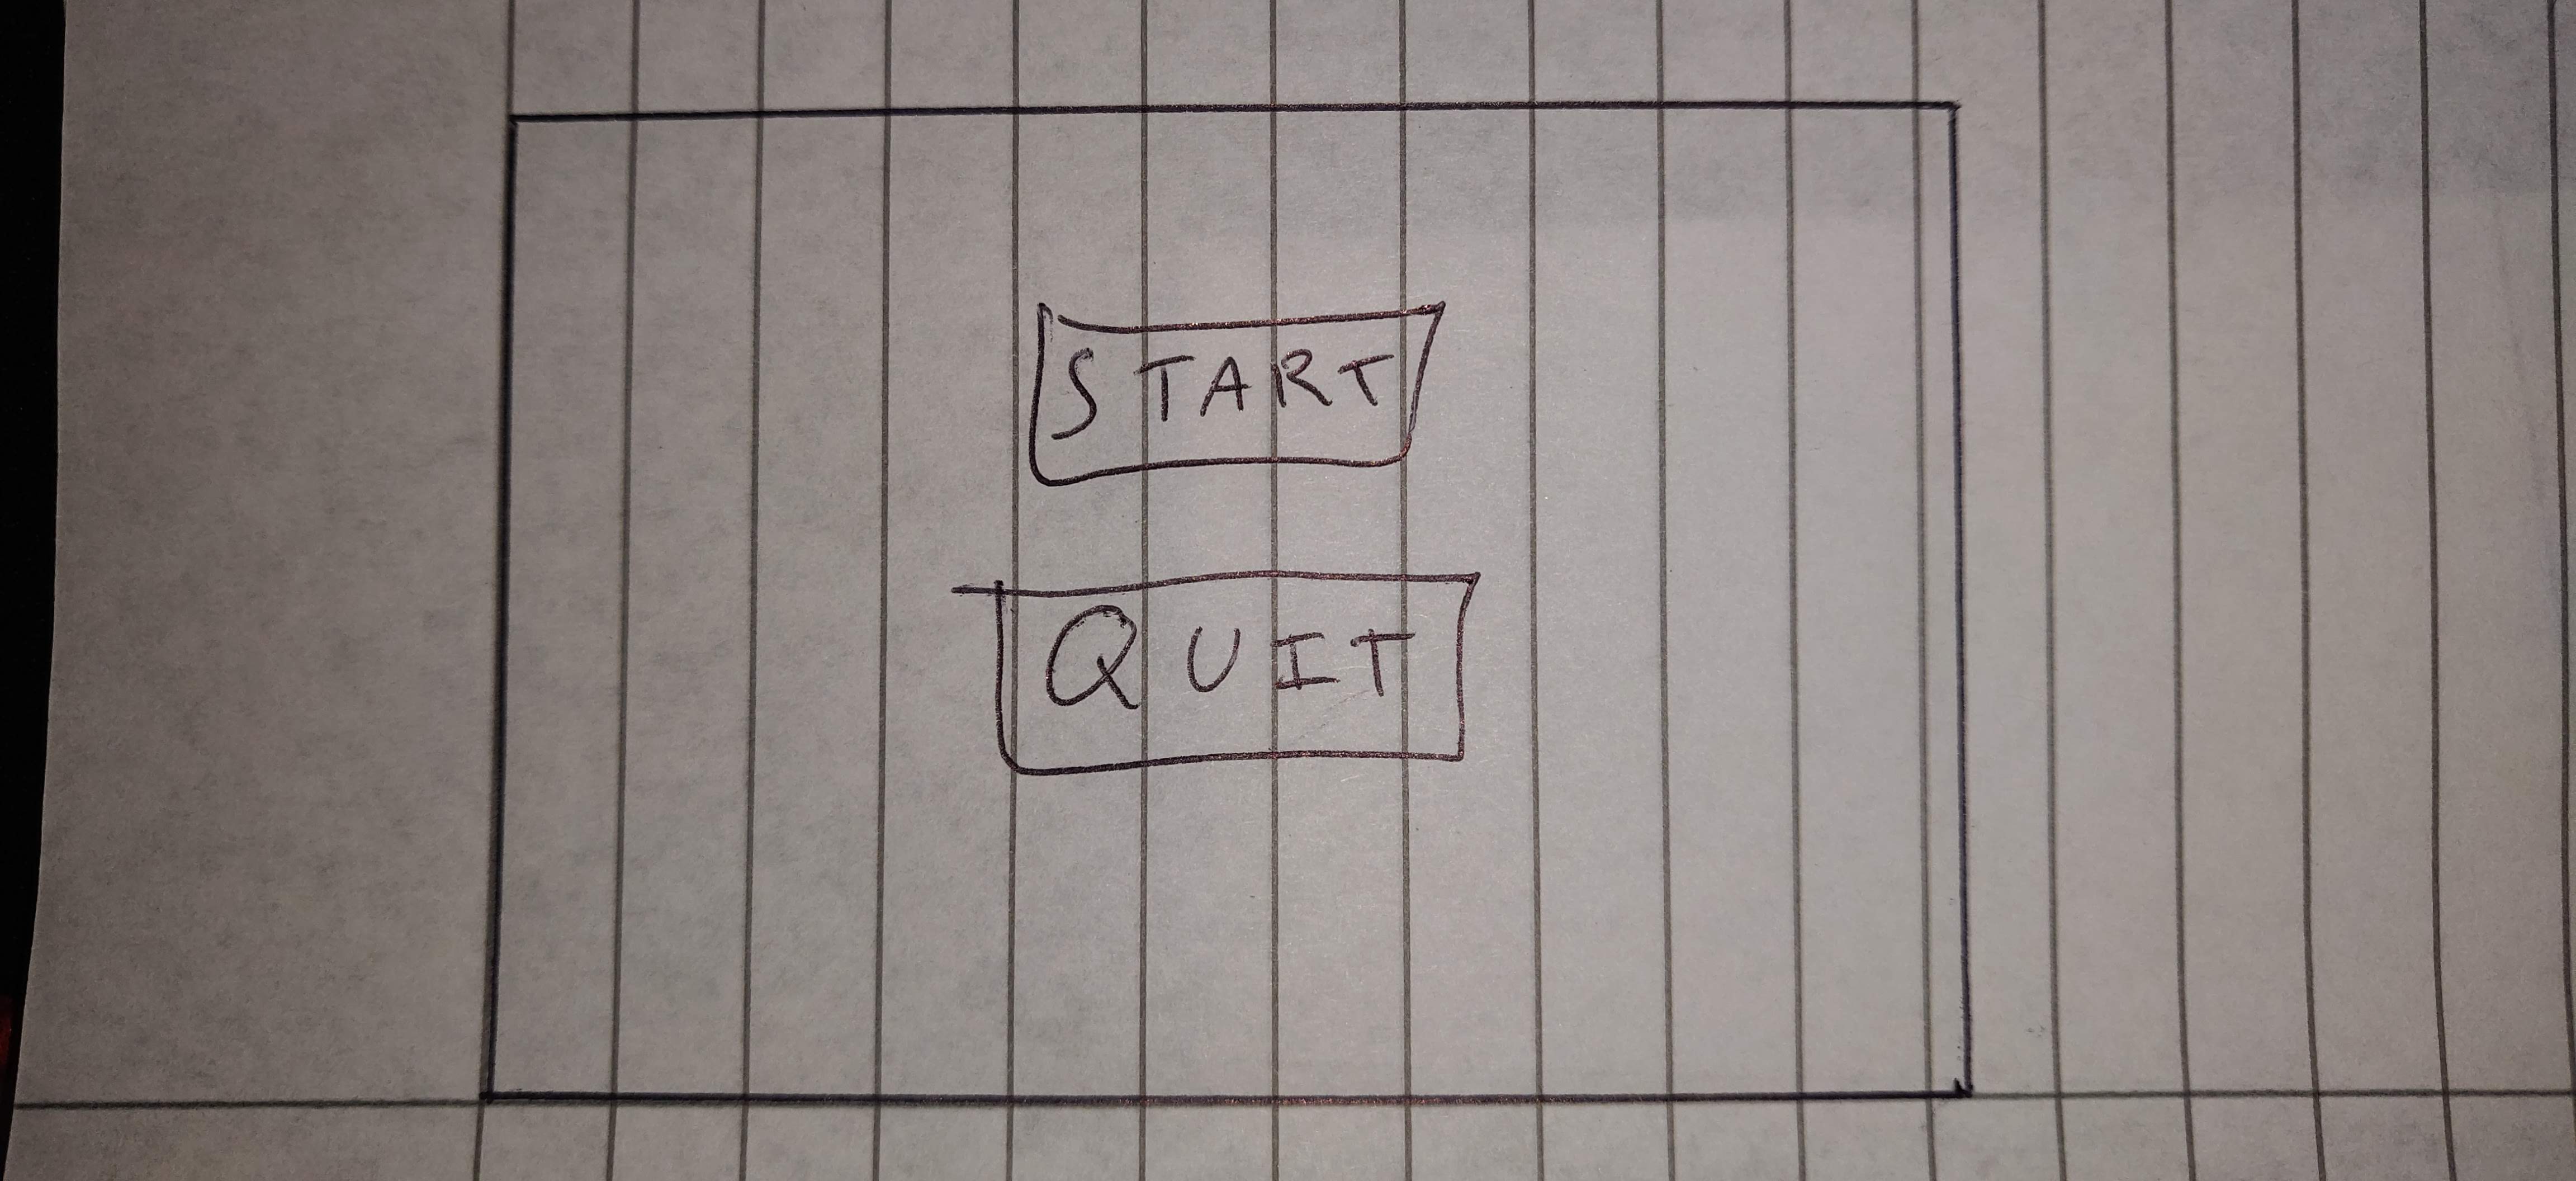 START
QUIT